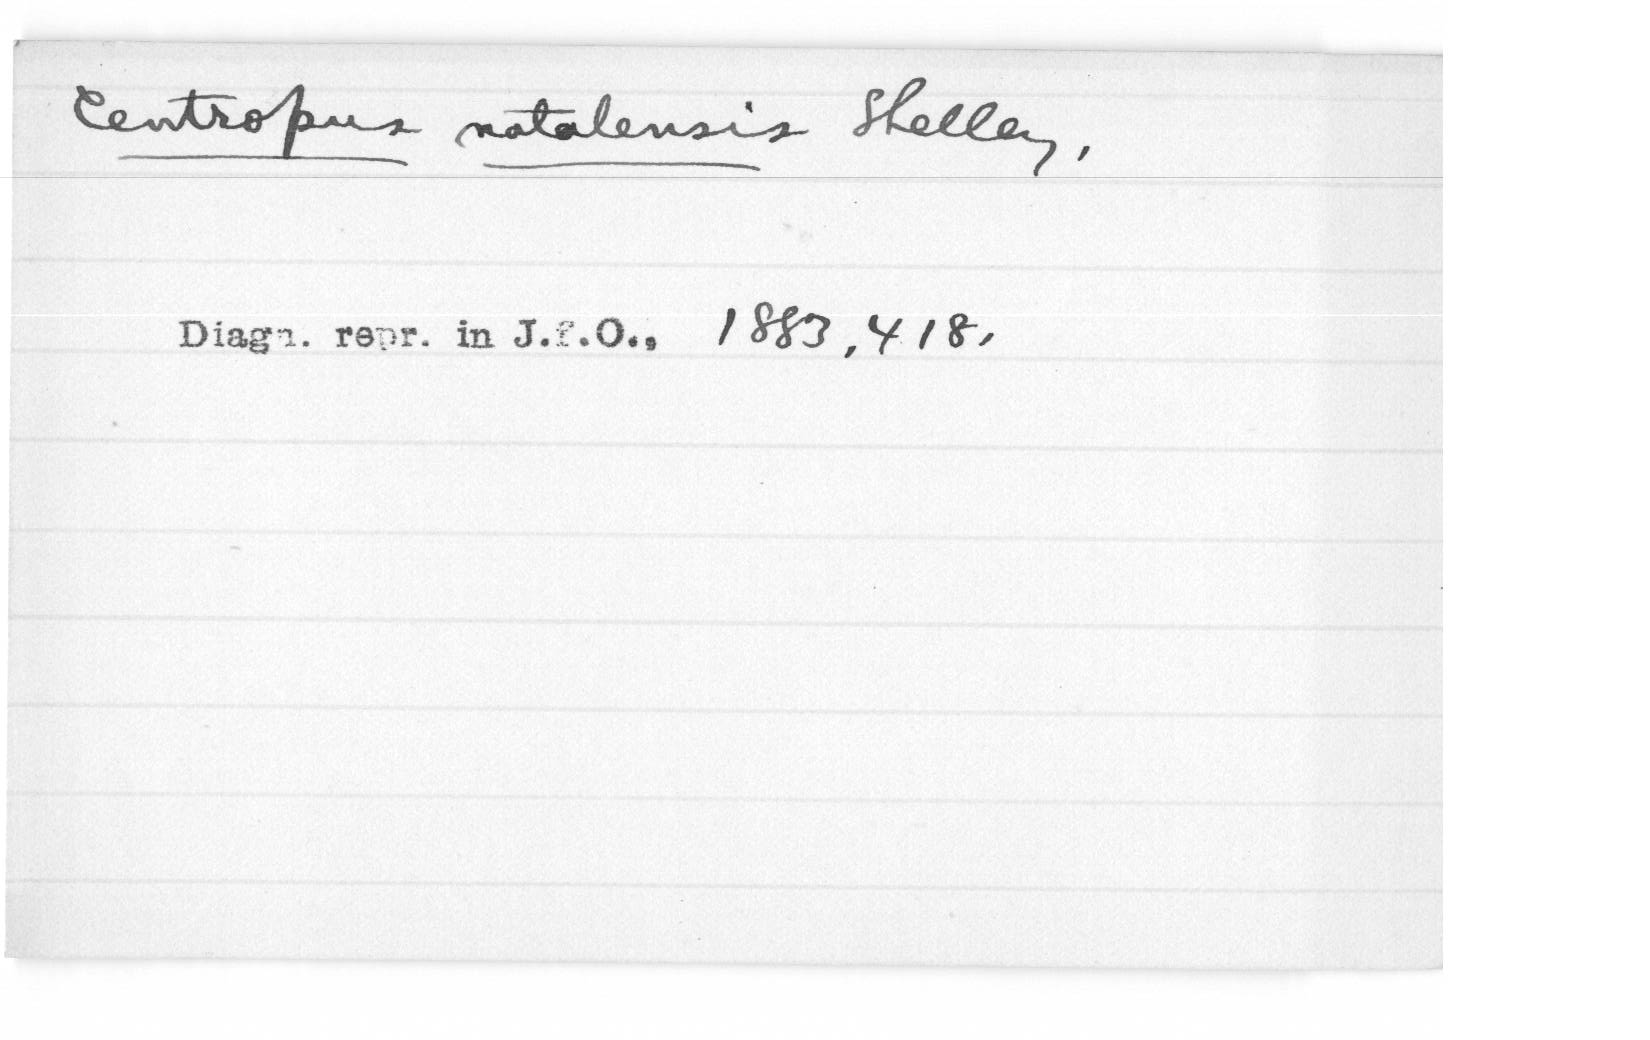 Centropus natalensis Shelley,
Diagn. repr. in J.f.O., 1883, 418,